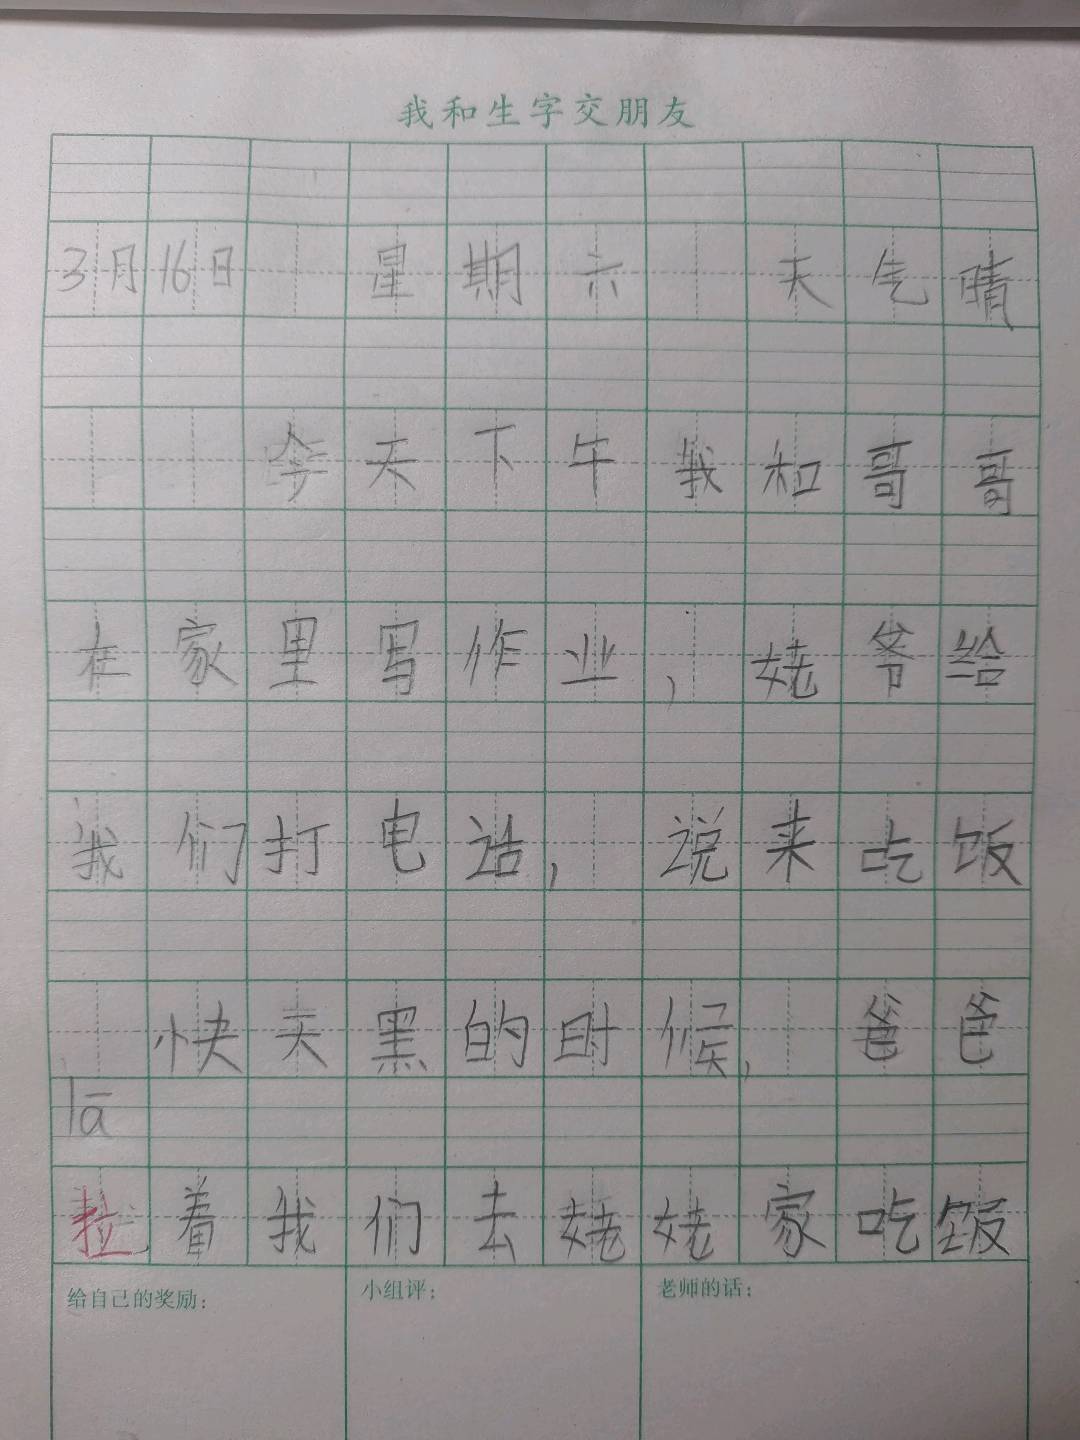 我和生字交朋友
3月16日 星期六 天气晴
今天下午我和哥哥
在家里写作业,姥爷给
我们打电话,说来吃饭
快天黑的时候,爸爸
lā
拉着我们去姥姥家吃饭
给自己的奖励: 小组评: 老师的话: